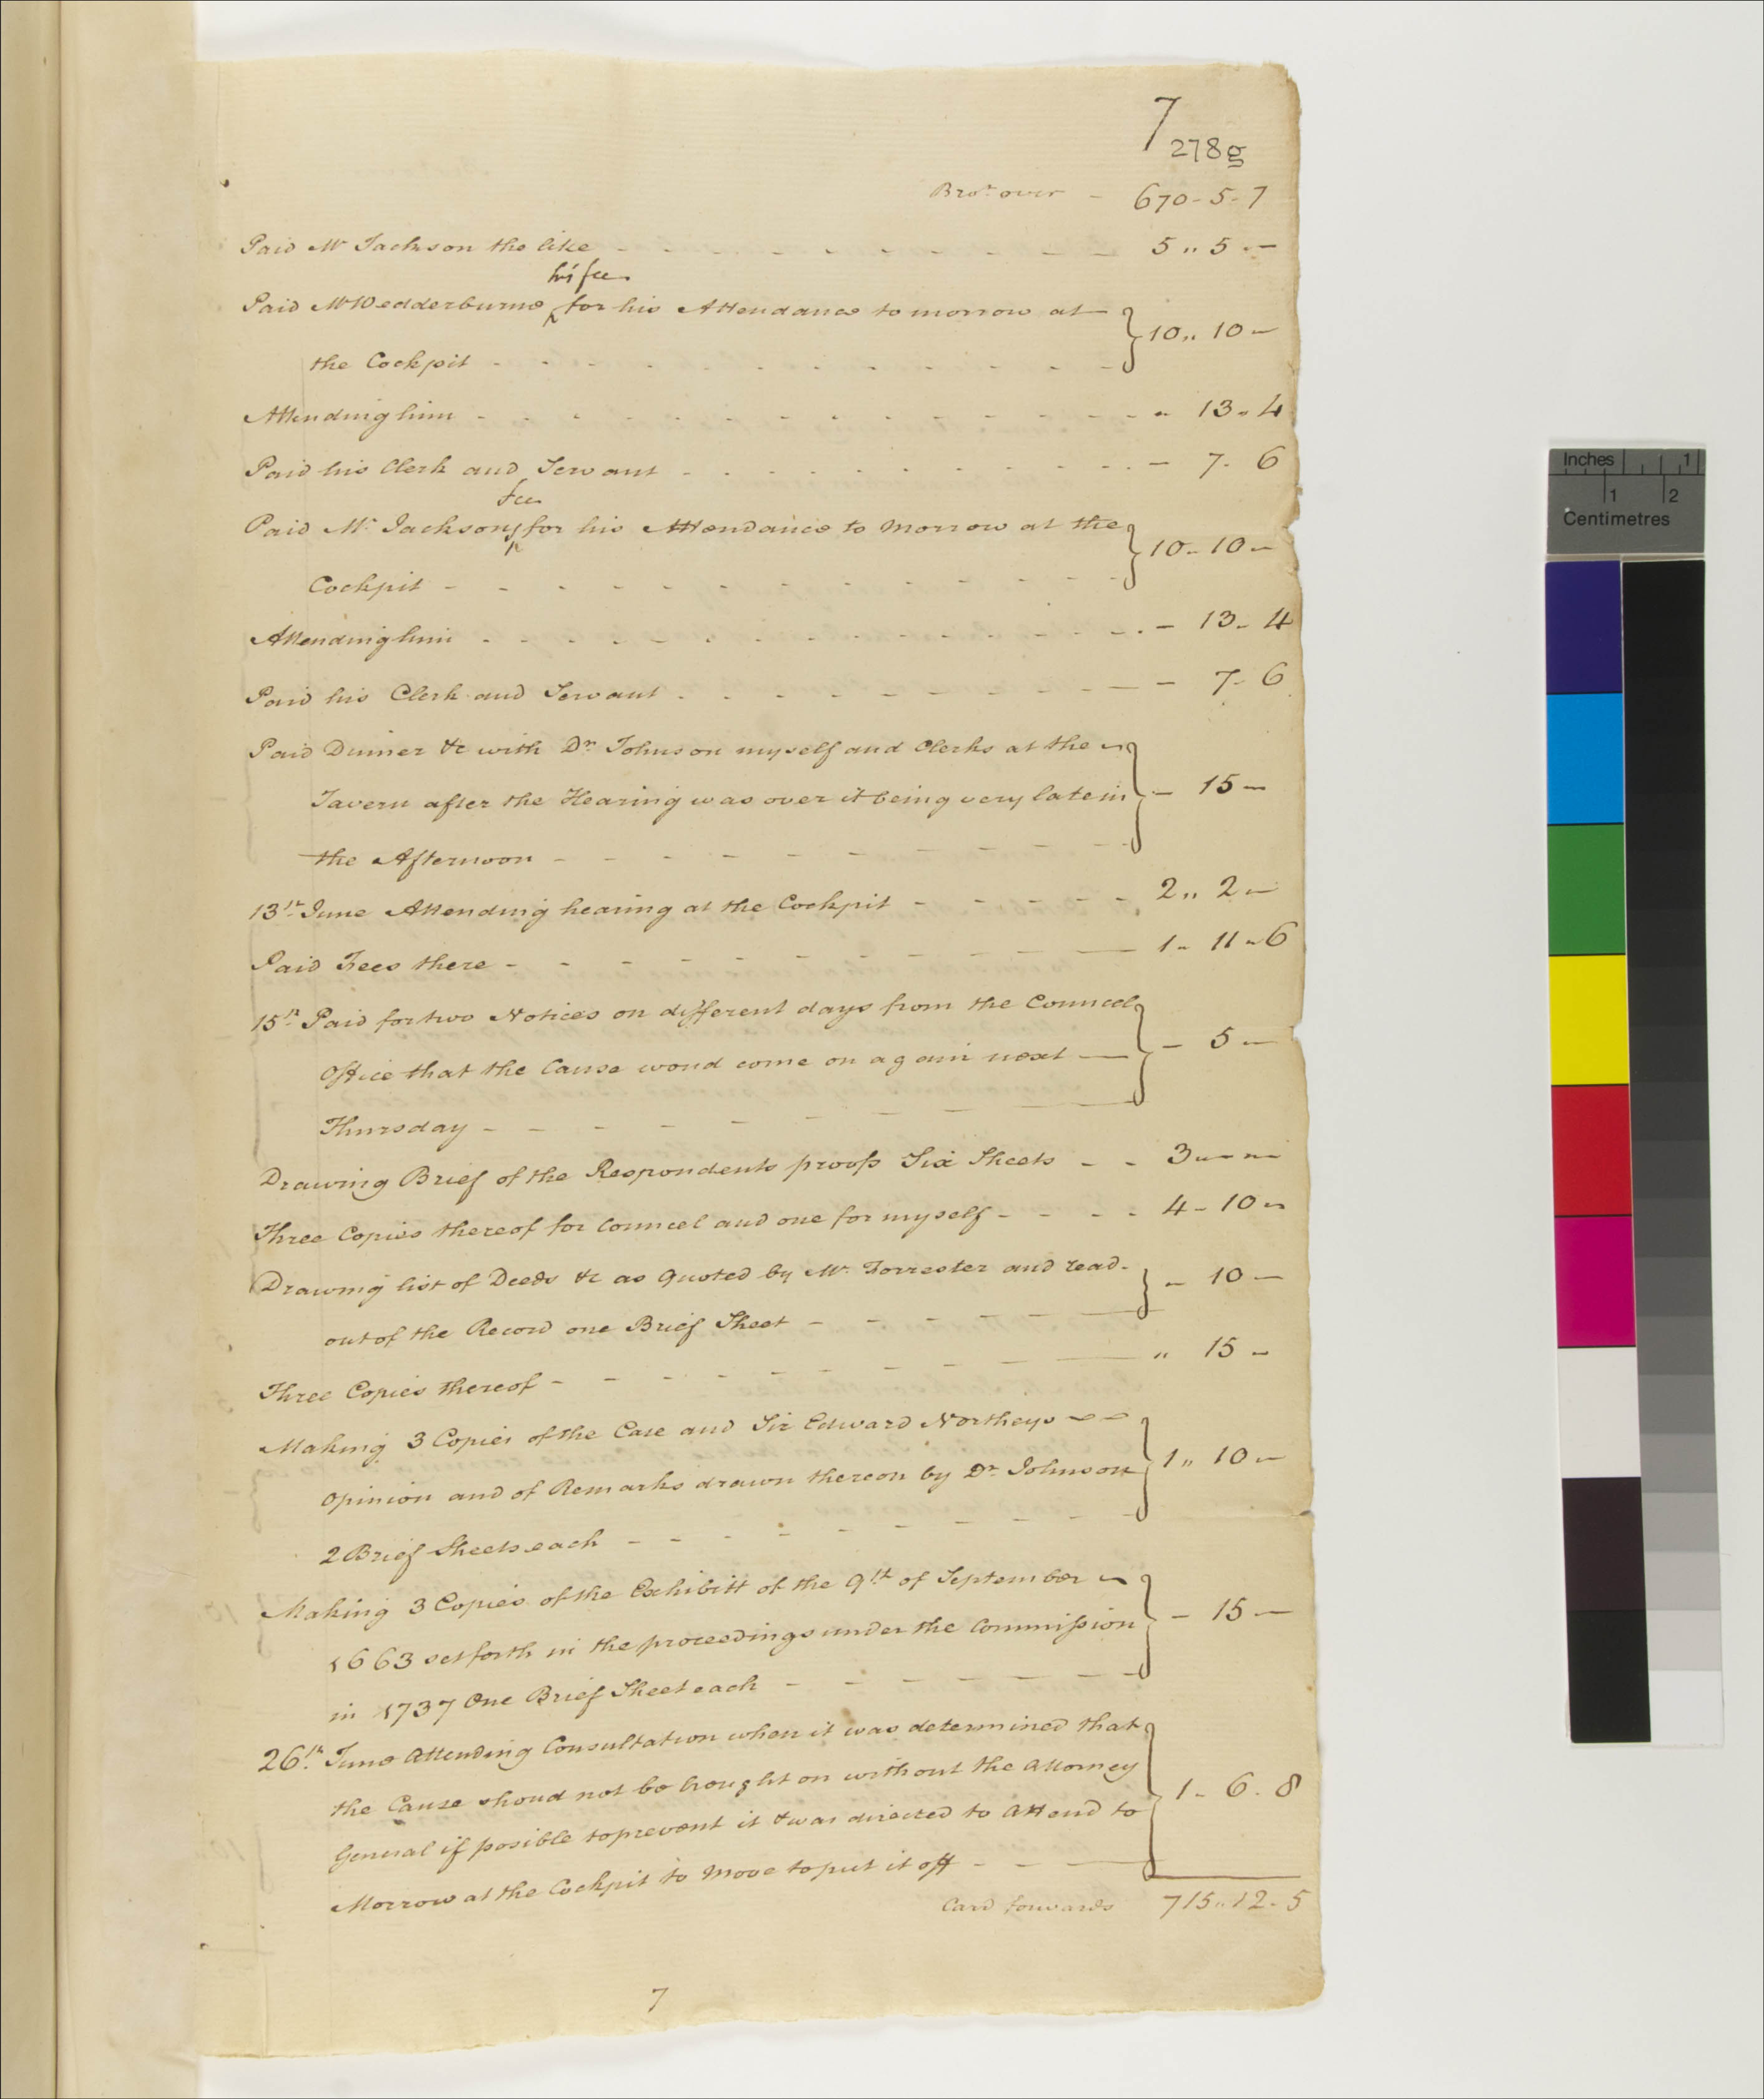 7
278g
Brot over - 670-5-7
Paid Mr Jackson the like - - - - - - - - - 5 " 5 "-
his fee
Paid Mr Wedderburne ^ for his Attendance to morrow at } 10 " 10 -
the Cockpit - - - - - - - - - - -
Attending him - - - - - - - - - - - - " 13 " 4
Paid his Clerk and Servant - - - - - - - - - - 7 - 6
fee
Paid Mr Jackson ^ for his Attendance to Morrow at the } 10 - 10 -
Cockpit - - - - - - - - - - -
Attending him - - - - - - - - - - - - - 13 - 4
Paid his Clerk and Servant - - - - - - - - - - 7 - 6
Paid Dinner &c with Dr Johnson myself and Clerks at the }
Tavern after the Hearing was over it being very late in } - 15 -
the Afternoon - - - - - - - - - -
13th June Attending hearing at the Cockpit - - - - - 2 " 2 -
Paid Fees there - - - - - - - - - - 1 - 11 - 6
15th Paid for two Notices on different days from the Councel }
Office that the Cause woud come on again next - } - 5 -
Thursday - - - - - - - -
Drawing Brief of the Respondents proofs Six Sheets - - 3 " - " -
Three Copies thereof for Councel and one for myself - - - - 4 - 10 "
Drawing list of Deeds &c as Quoted by Mr Forrester and read- } - 10 -
out of the Record one Brief Sheet - - - - -
Three Copies thereof - - - - - - - - - " 15 -
Making 3 Copies of the Case and Sir Edward Northeys }
Opinion and of Remarks drawn thereon by Dr Johnson } 1 " 10 -
2 Brief Sheets each - - - - - - - -
Making 3 Copies of the Exhibitt of the 9th of September }
1663 set forth in the proceedings under the Commission } - 15 -
in 1737 One Brief Sheet each - - - - - -
26th June Attending Consultation when it was determined that }
the Cause shoud not be brought on without the Attorney
General if posible to prevent it & was directed to Attend to } 1 - 6 - 8
Morrow at the Cockpit to Move to put it off - - -
Card forwards 715 " 12 - 5
7
Inches 1
1 2
Centimetres